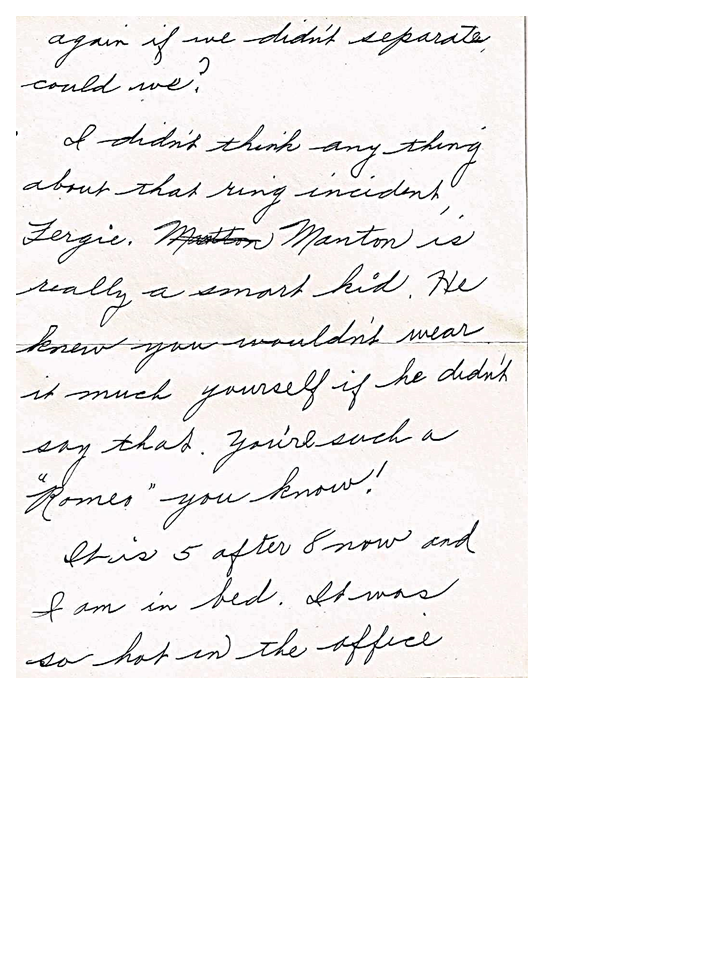 again if we didn't separate,
could we?
I didn't think any thing
about that ring incident,
Fergie. Mutton Manton is
really a smart kid. He
knew you wouldn't wear
it much yourself if he didn't
say that. You're such a
"Romeo" you know!
It is 5 after 8 now and
I am in bed. It was
so hot in the office